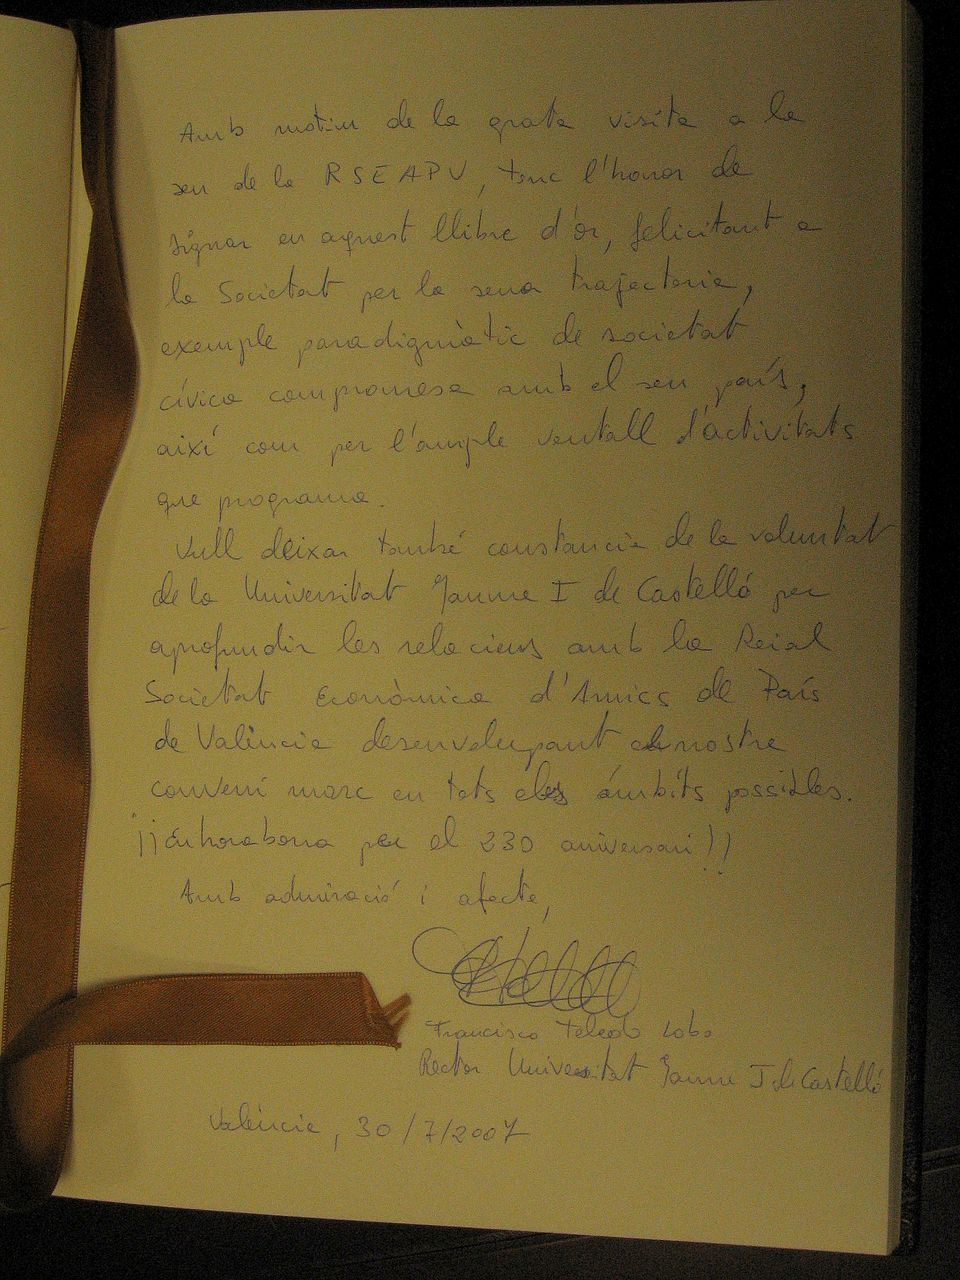 Amb motiu de la grata visita a la
seu de la RSEAPV, tinc l'honor de
signar en aquest llibre d'or, felicitant a
la Societat per la seua trajectoria,
exemple paradigmàtic de societat
cívica compromesa amb el seu país,
així com per l'ample ventall d'activitats
que programa.
Vull deixar també constancia de la voluntat
de la Universitat Jaume I de Castelló per
aprofundir les relacions amb la Reial
Societat Econòmica d'Amics de País
de València desenvolupant el nostre
conveni marc en tots els ámbits possibles.
¡¡Enhorabona per el 230 aniversari!!
Amb admiració i afecte,
Francisco Toledo Lobo
Rector Universitat Jaume I de Castelló
València, 30/7/2007